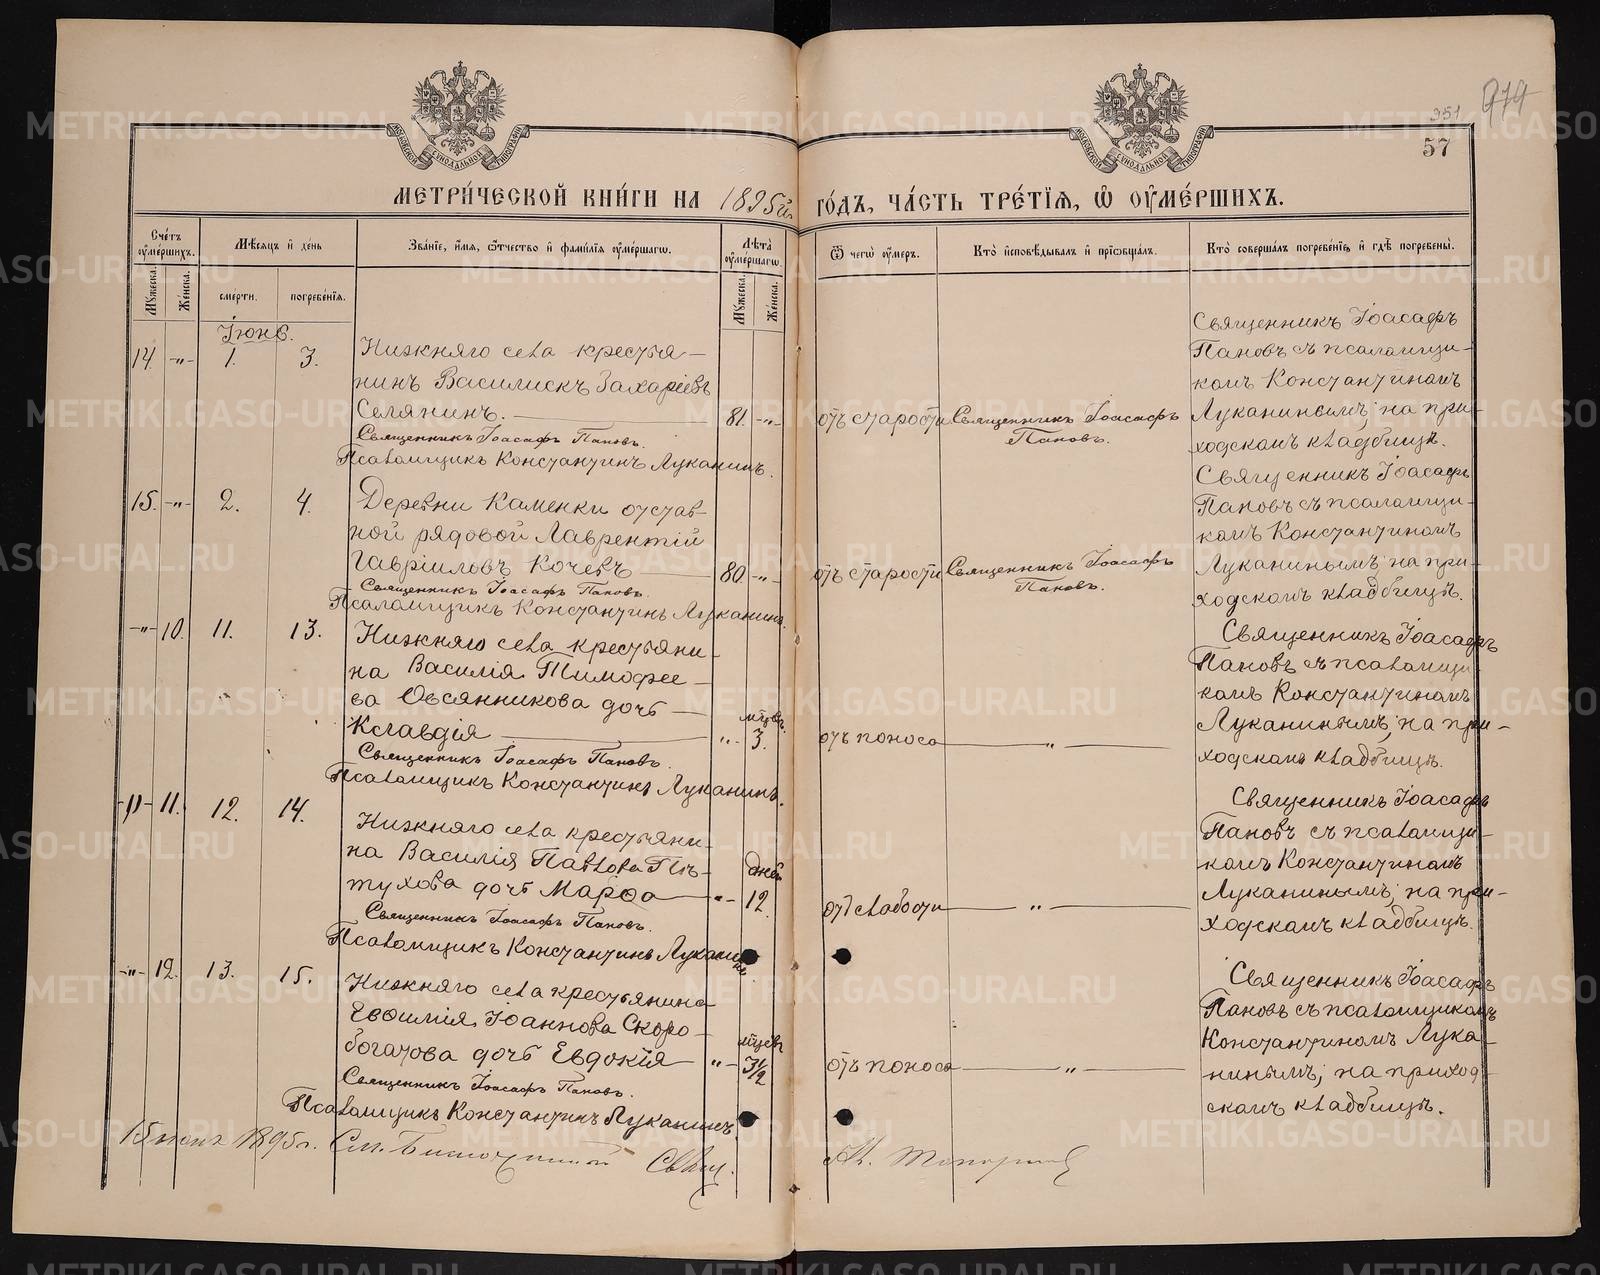 951
974
57
МОСКОВСКОЙ СѴНОДАЛЬНОЙ ТИПОГРАФІИ
МОСКОВСКОЙ СѴНОДАЛЬНОЙ ТИПОГРАФІИ
МЕТРИ́ЧЕСКОЙ КНИ́ГИ НА 1895й ГО́ДЪ, ЧА́СТЬ ТРЕ́ТІѦ, Ѡ ОУ҆МЕ́РШИХЪ.
Сче́тъ оу҆ме́ршихъ.
Мѣ́сѧцъ и҆ де́нь
Зва́нїе, и҆́мѧ, ѻ҆́тчество и҆ фамі́лїѧ оу҆ме́ршагѡ.
Лѣ́та оу҆ме́ршагѡ.
Ѿ чегѡ̀ оу҆́меръ.
Кто̀ и҆сповѣ́дывалъ и҆ прїѡбща́лъ.
Кто̀ соверша́лъ погребе́нїе и҆ гдѣ̀ погребены̀.
Мꙋ́жеска.
Же́нска.
сме́рти.
погребе́нїѧ.
Мꙋ́жеска.
Же́нска.
Іюнь.
14 -"- 1. 3.
Нижняго села крестья-
нинъ Василискъ Захаріевъ
Селянинъ. 81. -"-
Священникъ Іоасафъ Пановъ.
Псаломщикъ Константинъ Луканинъ.
отъ старости
Священникъ Іоасафъ
Пановъ.
Священникъ Іоасафъ
Пановъ съ псаломщи-
комъ Константиномъ
Луканинымъ; на при-
ходскомъ кладбищѣ.
15. -"- 2. 4.
Деревни Каменки отстав-
ной рядовой Лаврентій
Гавріиловъ Кочевъ 80. -"-
Священникъ Іоасафъ Пановъ.
Псаломщикъ Константинъ Луканинъ.
отъ старости
Священникъ Іоасафъ
Пановъ.
Священникъ Іоасафъ
Пановъ съ псаломщи-
комъ Константиномъ
Луканинымъ; на при-
ходскомъ кладбищѣ.
-"- 10. 11. 13.
Нижняго села крестьяни-
на Василія Тимофее-
ва Овсянникова дочь
Клавдія -"- мѣсяц. 3.
Священникъ Іоасафъ Пановъ.
Псаломщикъ Константинъ Луканинъ.
отъ поноса
-"-
Священникъ Іоасафъ
Пановъ съ псаломщи-
комъ Константиномъ
Луканинымъ; на при-
ходскомъ кладбищѣ.
-"- 11. 12. 14.
Нижняго села крестьяни-
на Василія Павлова Пѣ-
тухова дочь Марѳа -"- дней 12.
Священникъ Іоасафъ Пановъ.
Псаломщикъ Константинъ Луканинъ
отъ слабости
-"-
Священникъ Іоасафъ
Пановъ съ псаломщи-
комъ Константиномъ
Луканинымъ; на при-
ходскомъ кладбищѣ.
-"- 12. 13. 15.
Нижняго села крестьянина
Евѳимія Іоаннова Скоро-
богатова дочь Евдокія -"- мѣсяц. 3½
Священникъ Іоасафъ Пановъ.
Псаломщикъ Константинъ Луканинъ.
отъ поноса
-"-
Священникъ Іоасафъ
Пановъ съ псаломщикомъ
Константиномъ Лука-
нинымъ; на приход-
скомъ кладбищѣ.
15 1895 г. См. Свящ.
METRIKI.GASO-URAL.RU